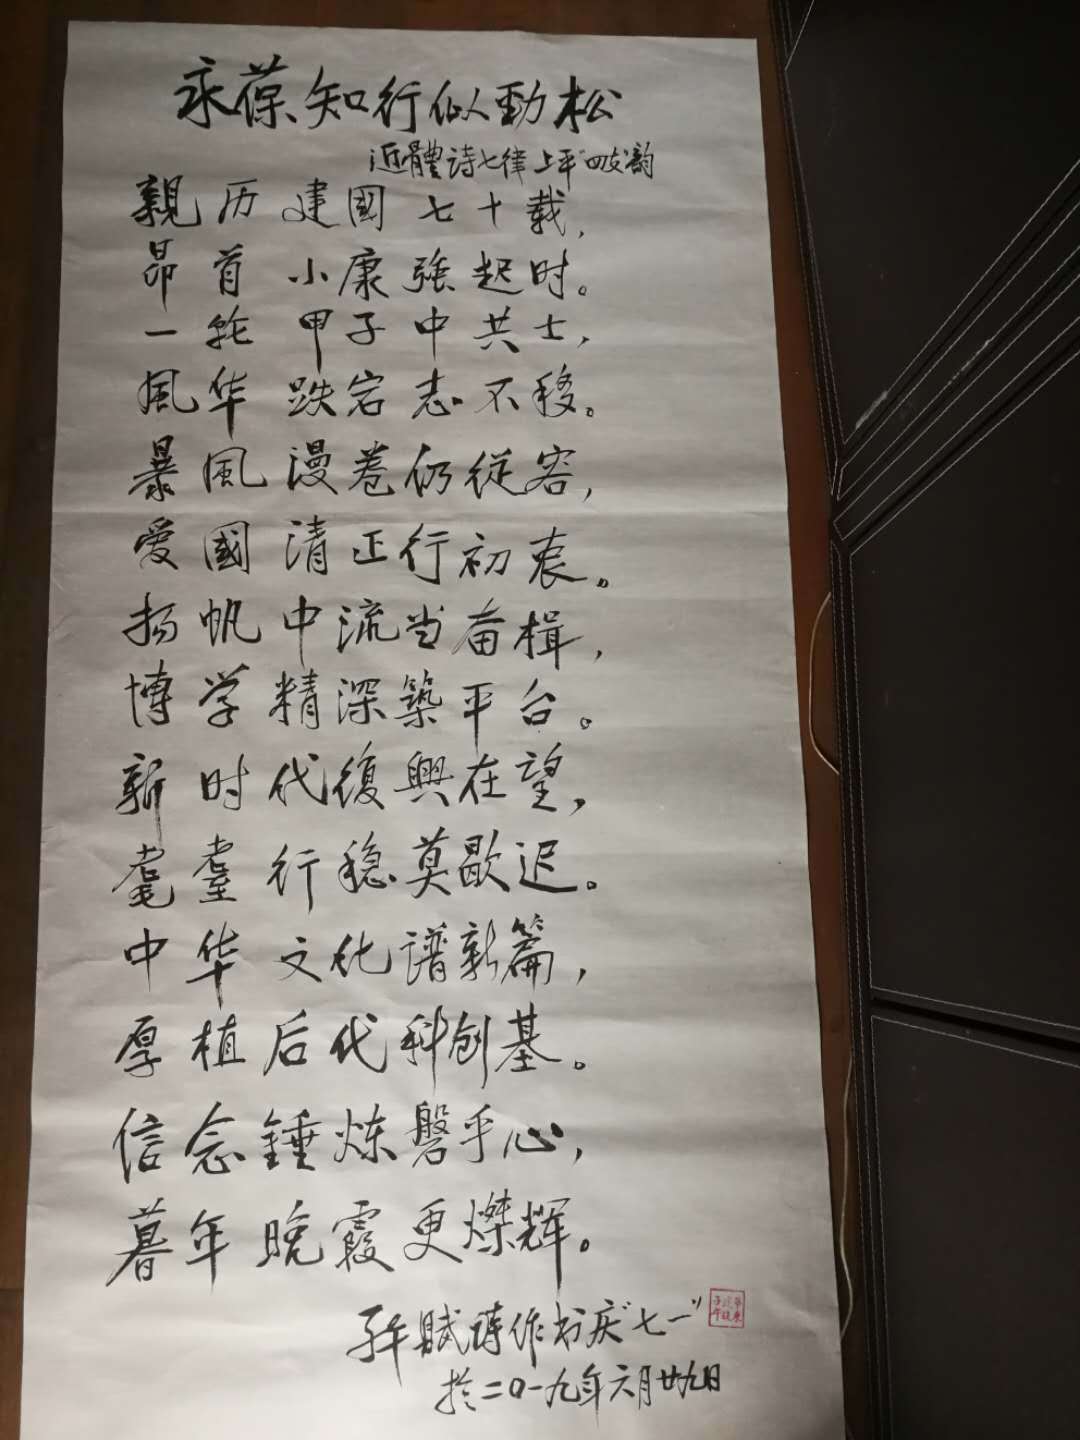 永葆知行似勁松
近體诗七律上平"四支"韵
親历建國七十载,
昂首小康强起时。
一轮甲子中共士,
風华跌宕志不移。
暴風漫卷仍從容,
爱國清正行初衷。
扬帆中流当奋楫,
博学精深築平台。
新时代復興在望,
耄耋行稳莫歇迟。
中华文化谱新篇,
厚植后代科创基。
信念錘炼磐乎心,
暮年晚霞更燦辉。
子午賦诗作书庆"七一"
於二0一九年六月廿九日